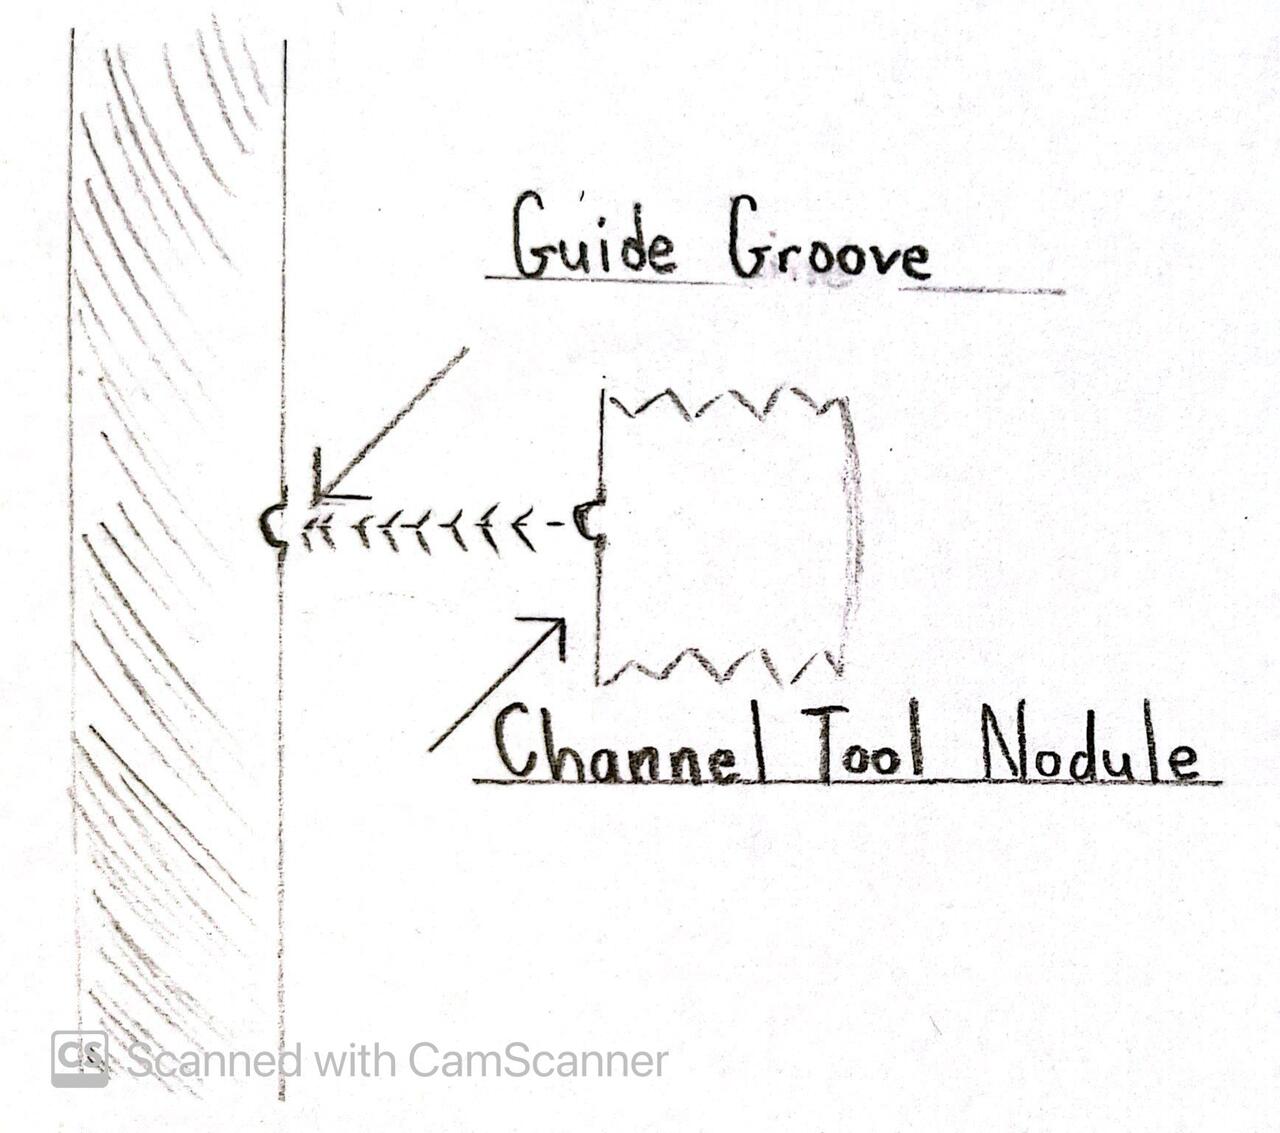 Guide Groove
Channel Tool Nodule
CS Scanned with CamScanner